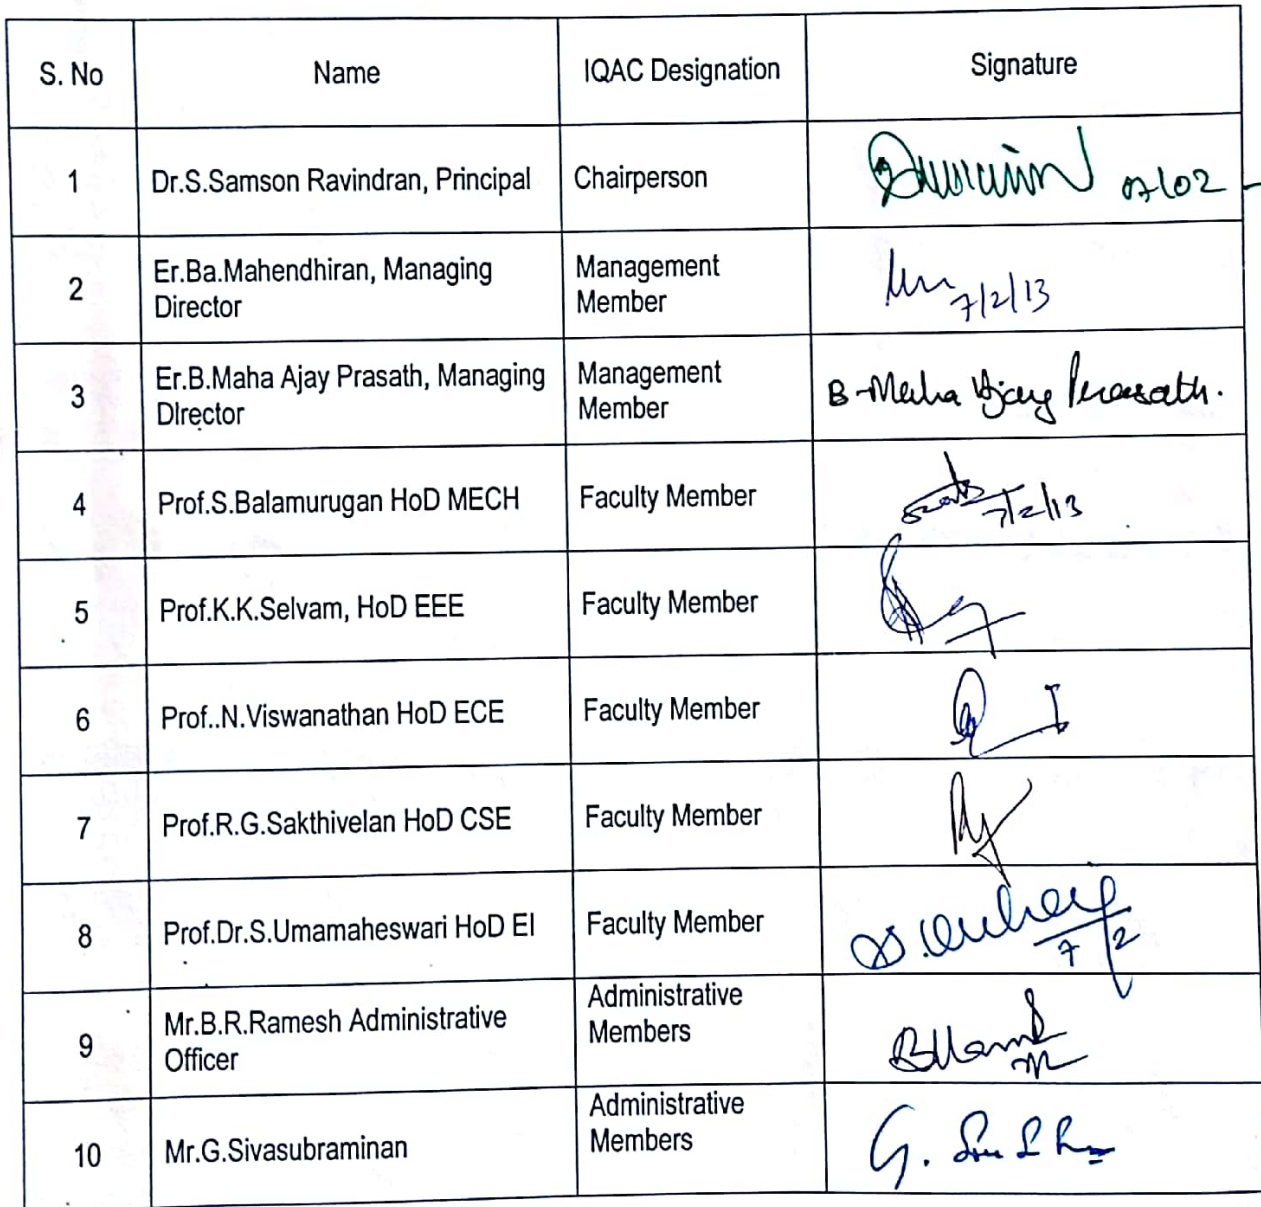 S. No Name IQAC Designation Signature
1 Dr.S.Samson Ravindran, Principal Chairperson 07/02
2 Er.Ba.Mahendhiran, Managing Director Management Member 7/2/13
3 Er.B.Maha Ajay Prasath, Managing DIrector Management Member B. Maha Ajay Prasath.
4 Prof.S.Balamurugan HoD MECH Faculty Member 7/2/13
5 Prof.K.K.Selvam, HoD EEE Faculty Member
6 Prof..N.Viswanathan HoD ECE Faculty Member
7 Prof.R.G.Sakthivelan HoD CSE Faculty Member
8 Prof.Dr.S.Umamaheswari HoD EI Faculty Member 7/2
9 Mr.B.R.Ramesh Administrative Officer Administrative Members
10 Mr.G.Sivasubraminan Administrative Members G.